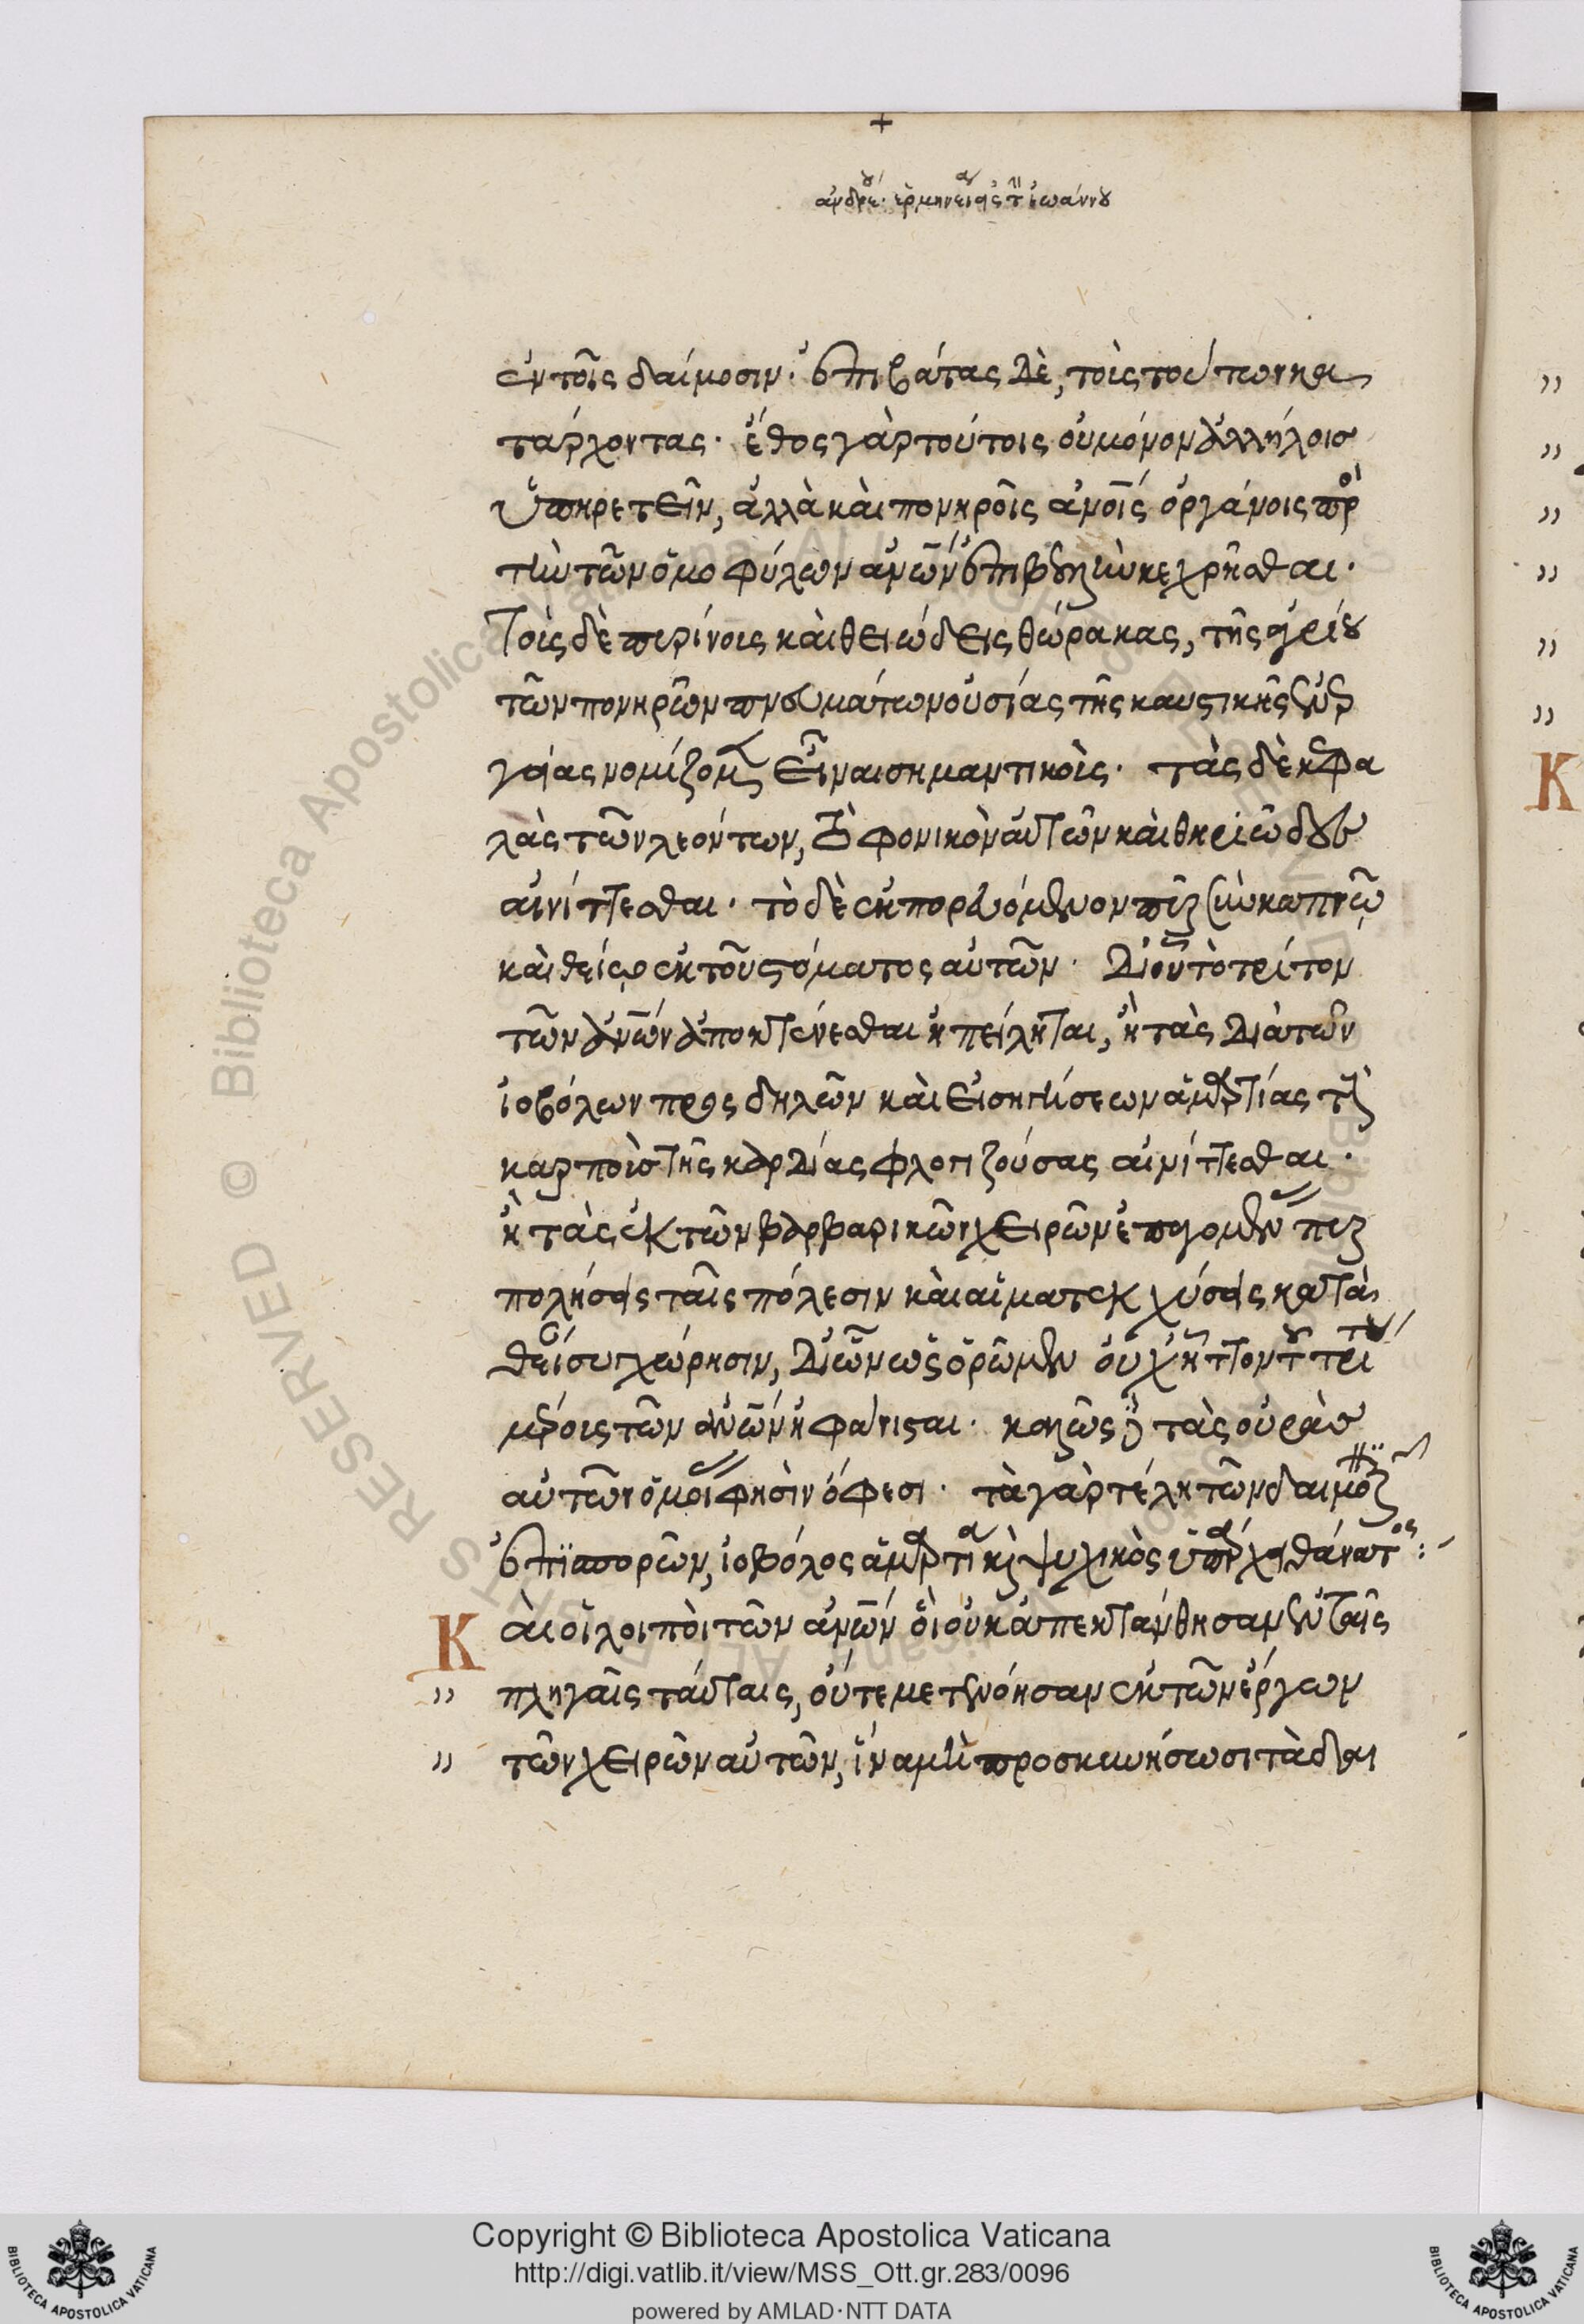 +
ἀνδρέου ἑρμηνεία εἰς τὴν ἰωάννου
ἐν τοῖς δαίμοσιν· ἐπιβάτας δὲ, τοὺς τούτων κα
τάρχοντας· ἔθος γὰρ τούτοις οὐ μόνον ἀλλήλοις
ὑπηρετεῖν, ἀλλὰ καὶ πονηροῖς ἀνοῖς ὀργάνοις πρὸ
τὴν τῶν ὁμοφύλων ἀνῶν ἐπιβουλὴν κεχρῆσθαι·
Τοὺς δὲ πυρίνους καὶ θειώδεις θώρακας, τῆς ἀερίου
τῶν πονηρῶν πνευμάτων οὐσίας τῆς καυστικῆς ἐνερ
γείας νομίζομεν εἶναι σημαντικοὺς· τὰς δὲ κεφα
λὰς τῶν λεόντων, τὸ φονικὸν αὐτῶν καὶ θηριῶδες
αἰνίττεσθαι· τὸ δὲ ἐκπορευόμενον πῦρ σὺν καπνῷ
καὶ θείῳ ἐκ τοῦ στόματος αὐτῶν· Δι' οὗ τὸ τρίτον
τῶν ἀνῶν ἀποκτένεσθαι ἠπείληται, ἢ τὰς διὰ τῶν
ἰοβόλων προσβολῶν καὶ εἰσηγήσεων ἁμαρτίας τοὺς
καρποὺς τῆς καρδίας φλογιζούσας αἰνίττεσθαι·
ἢ τὰς ἐκ τῶν βαρβαρικῶν χειρῶν ἐπαγομένας πυρ
πολήσεις ταῖς πόλεσιν καὶ αἱματεκχύσεις κατὰ
θείαν συγχώρησιν, Δι' ὧν ὡς ὁρῶμεν οὐχ ἧττον τοῦ τρίτου
μέρους τῶν ἀνῶν ἠφάνισται· καλῶς δὲ τὰς οὐρὰς
αὐτῶν ὁμοίας φησὶν ὄφεσι· τὰ γὰρ τέλη τῶν δαιμόνων
ἐπισπορῶν, ἰοβόλος ἁμαρτία καὶ ψυχικὸς ὑπάρχει θάνατος:
Καὶ οἱ λοιποὶ τῶν ἀνῶν οἳ οὐκ ἀπεκτάνθησαν ἐν ταῖς
πληγαῖς ταύταις, οὔτε μετενόησαν ἐκ τῶν ἔργων
τῶν χειρῶν αὐτῶν, ἵνα μὴ προσκυνήσωσι τὰ δαι
K
Copyright © Biblioteca Apostolica Vaticana
http://digi.vatlib.it/view/MSS_Ott.gr.283/0096
powered by AMLAD·NTT DATA